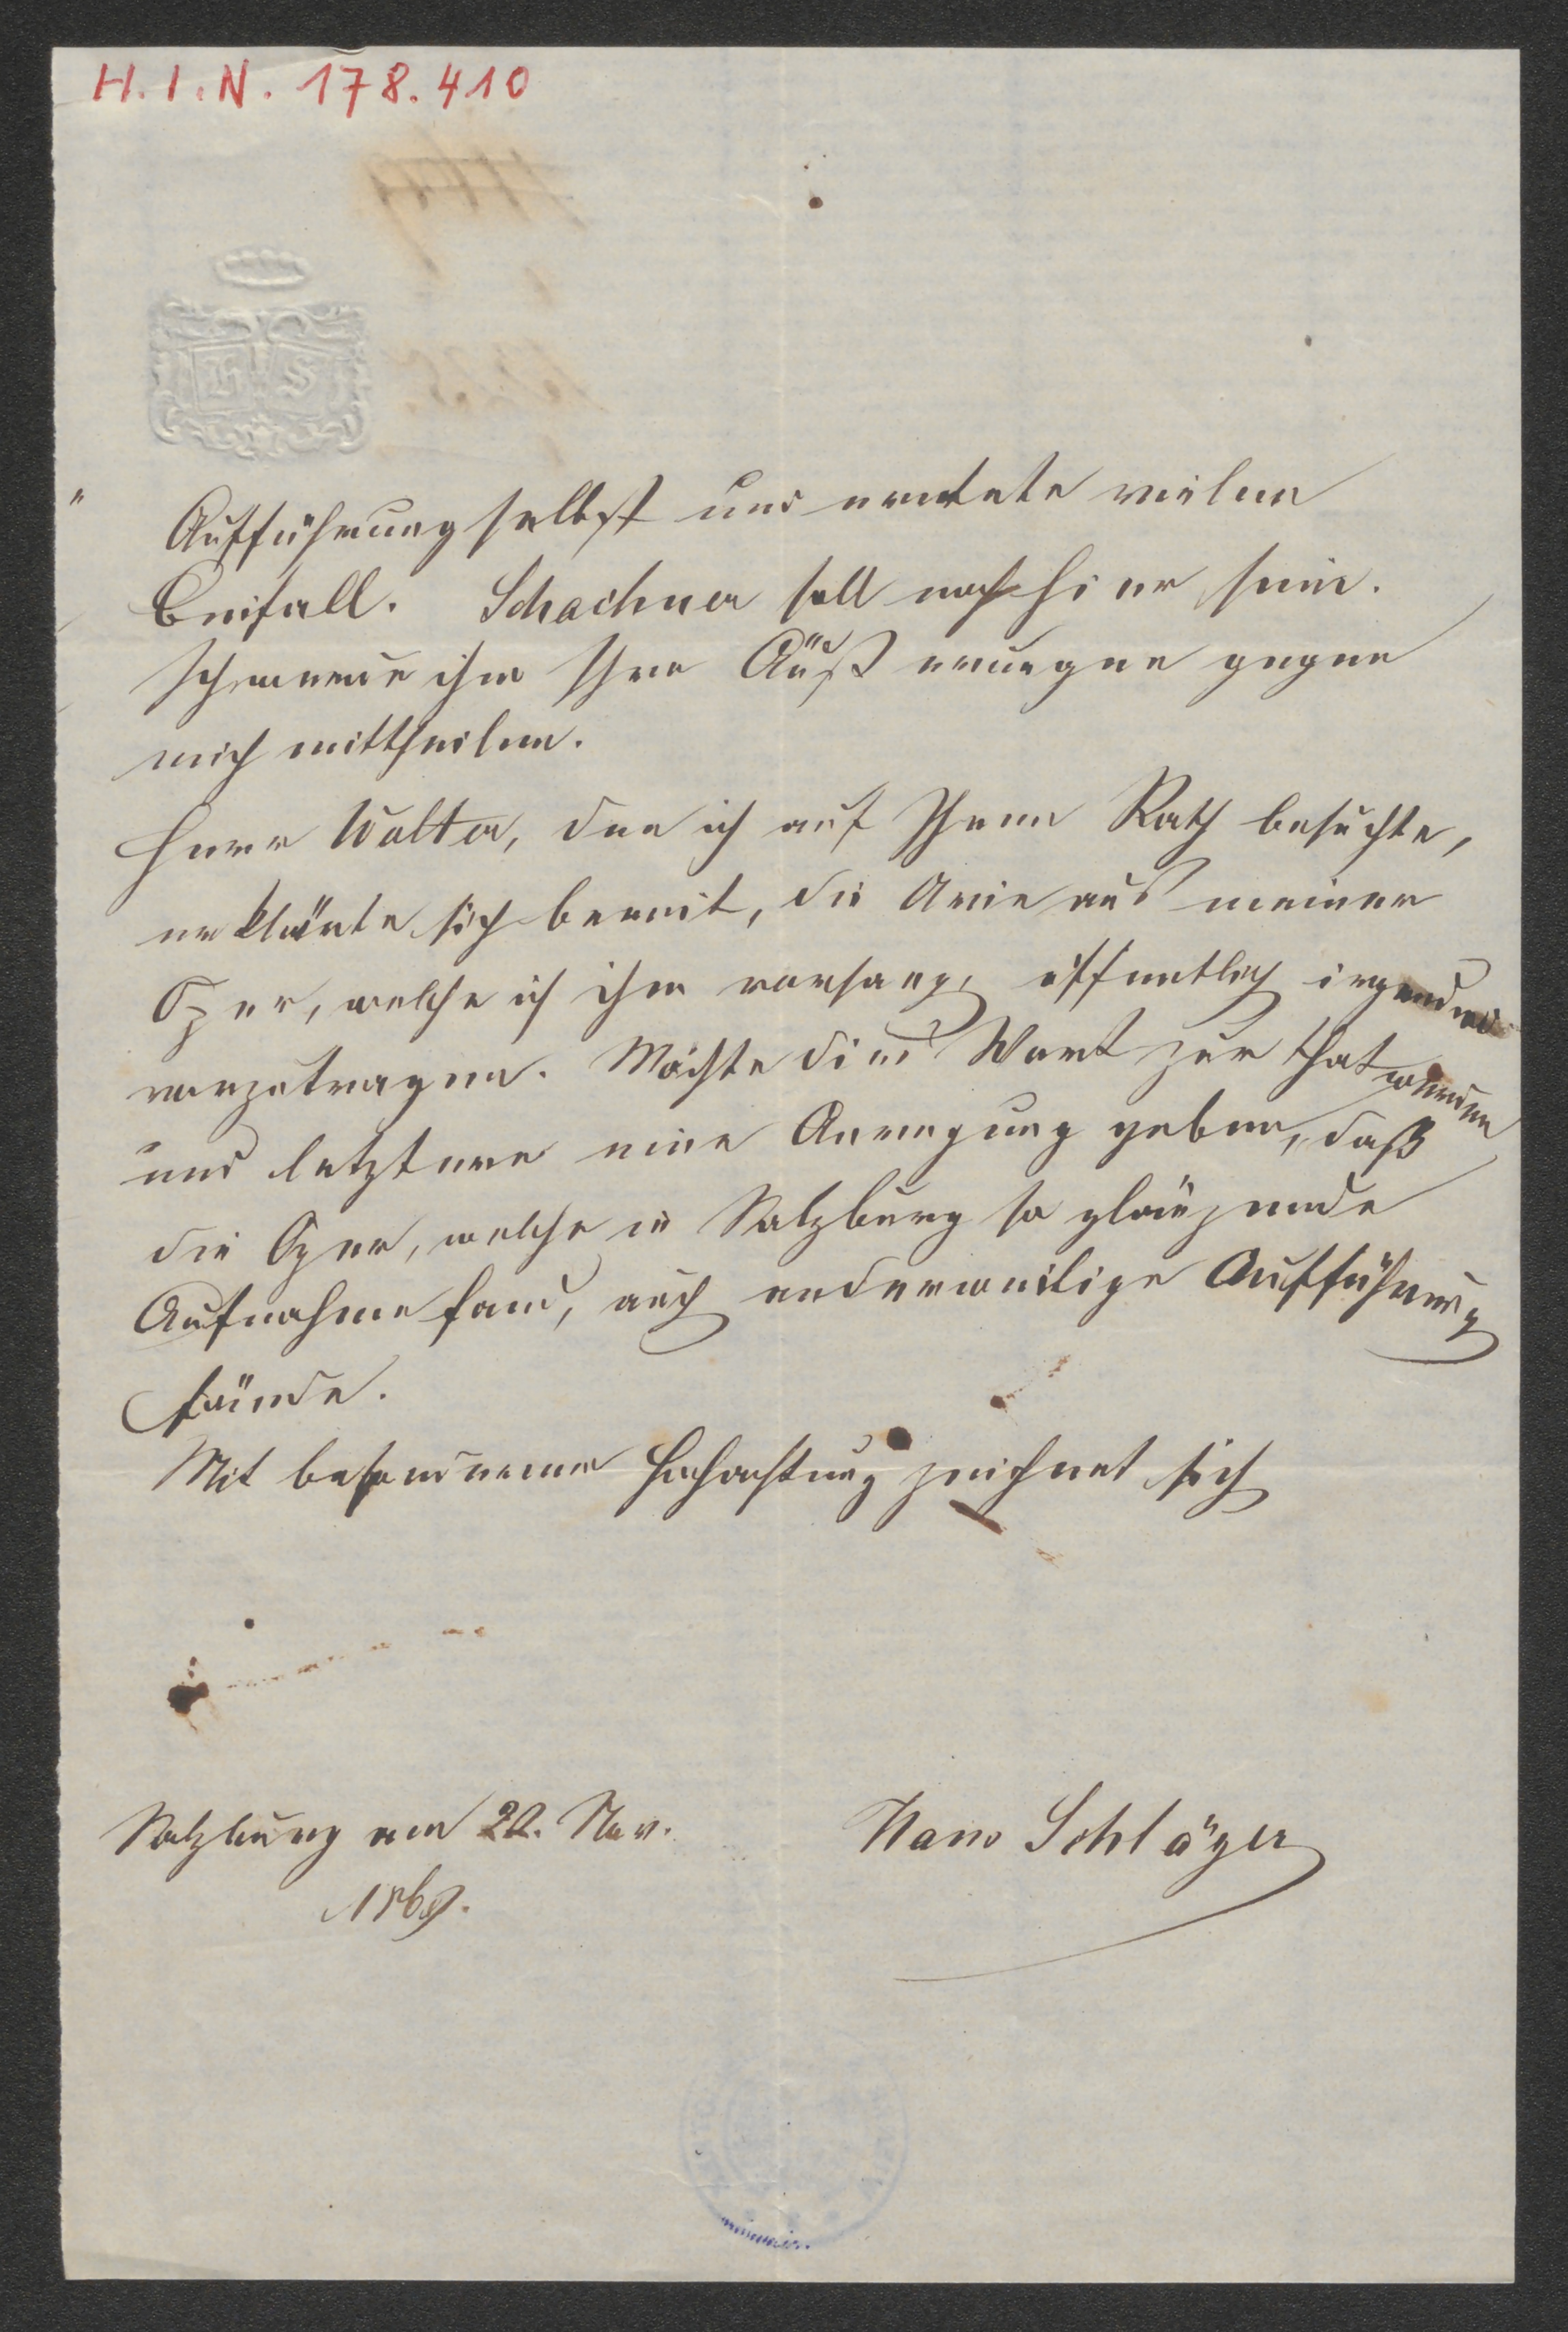 H.I.N. 178.410
H S
Aufführung selbst und erntete vielen
Beifall. Schachner soll noch hier sein.
Ich werde ihm Ihre Äußerungen gegen
mich mittheilen.
Herr Walter, den ich auf Ihren Rath besuchte,
erklärte sich bereit, die Arie aus meiner
Oper, welche ich ihm vorsang, öffentlich irgendwo
vorzutragen. Möchte dies Wort zur That werden
und letztere eine Anregung geben, daß
die Oper, welche in Salzburg so glänzende
Aufnahme fand, auch anderweitige Aufführung
fände.
Mit besonderer Hochachtung zeichnet sich
Salzburg am 22. Nov.
1869.
Hans Schläger